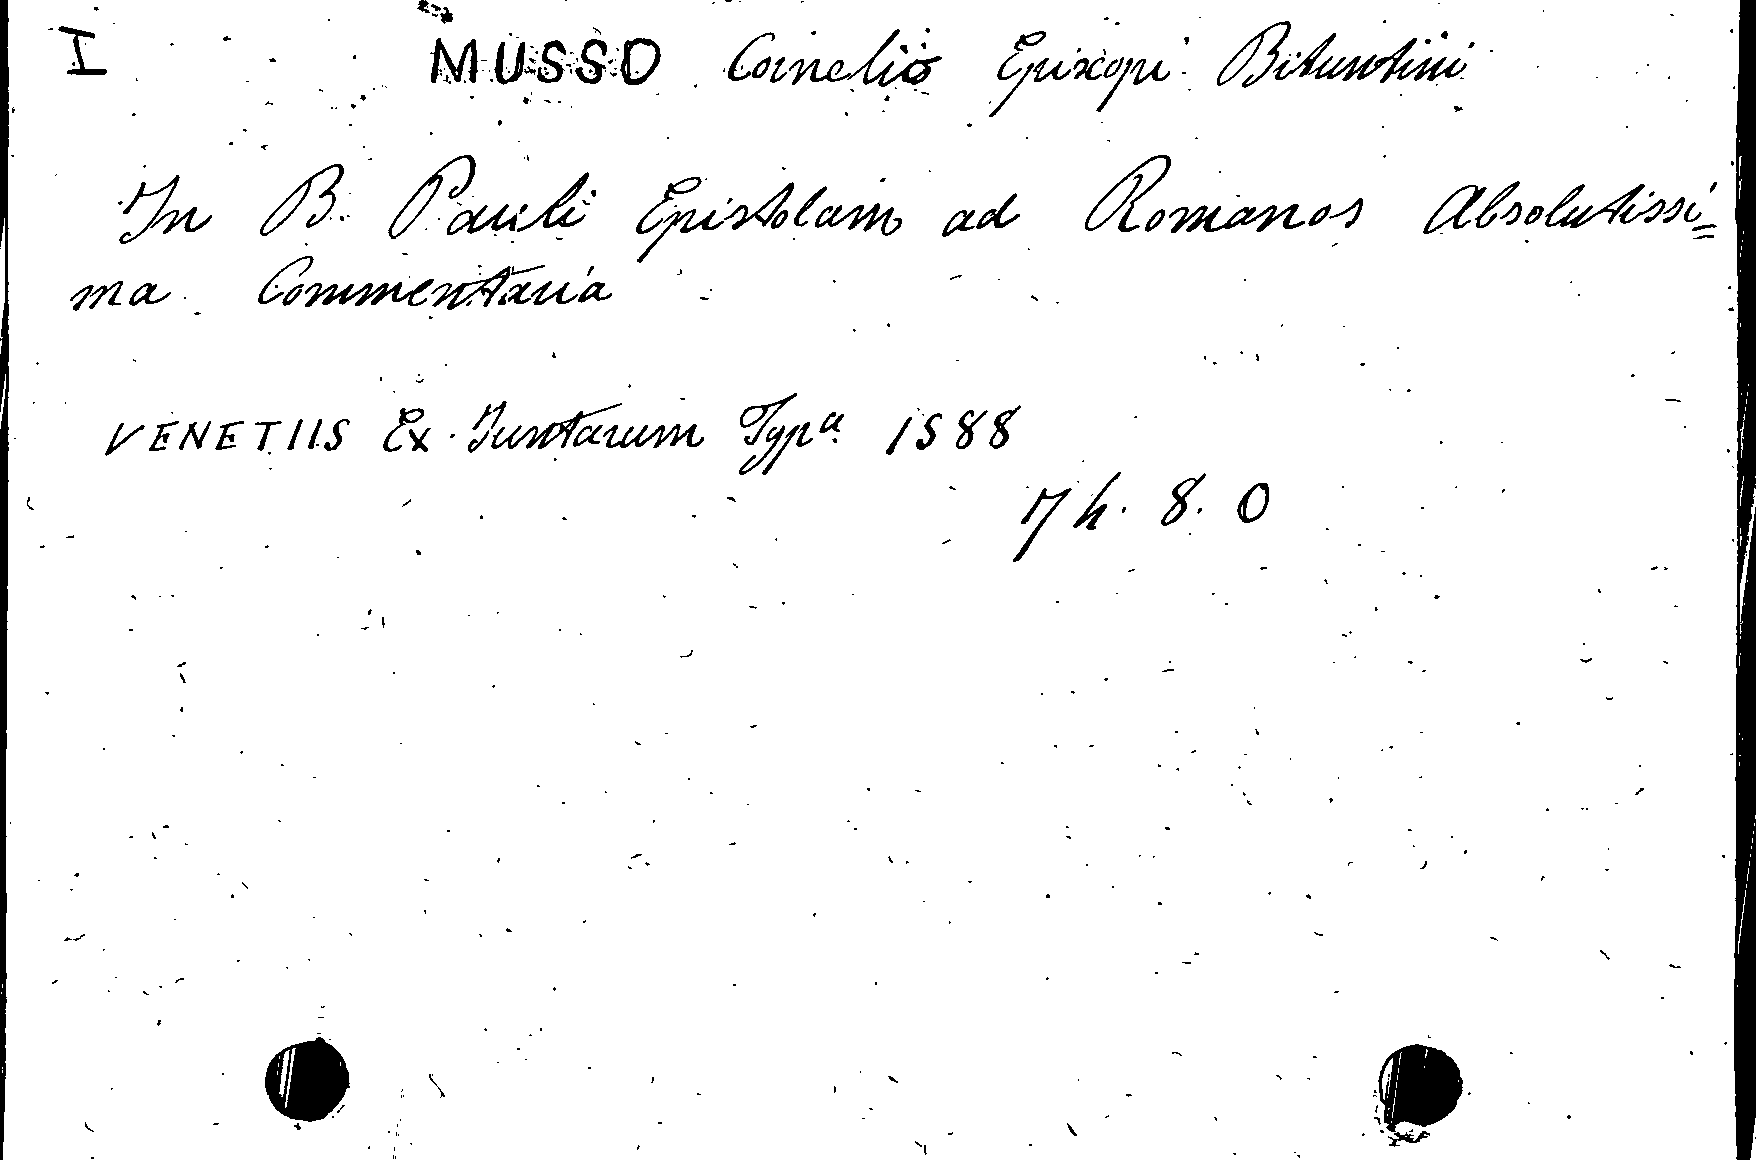 I MUSSO Cornelio Episcopi Bituntini
In B. Pauli Epistolam ad Romanos Absolutissi=
ma Commentaria
VENETIIS Ex Iuntarum Typª 1588
I h. 8. O